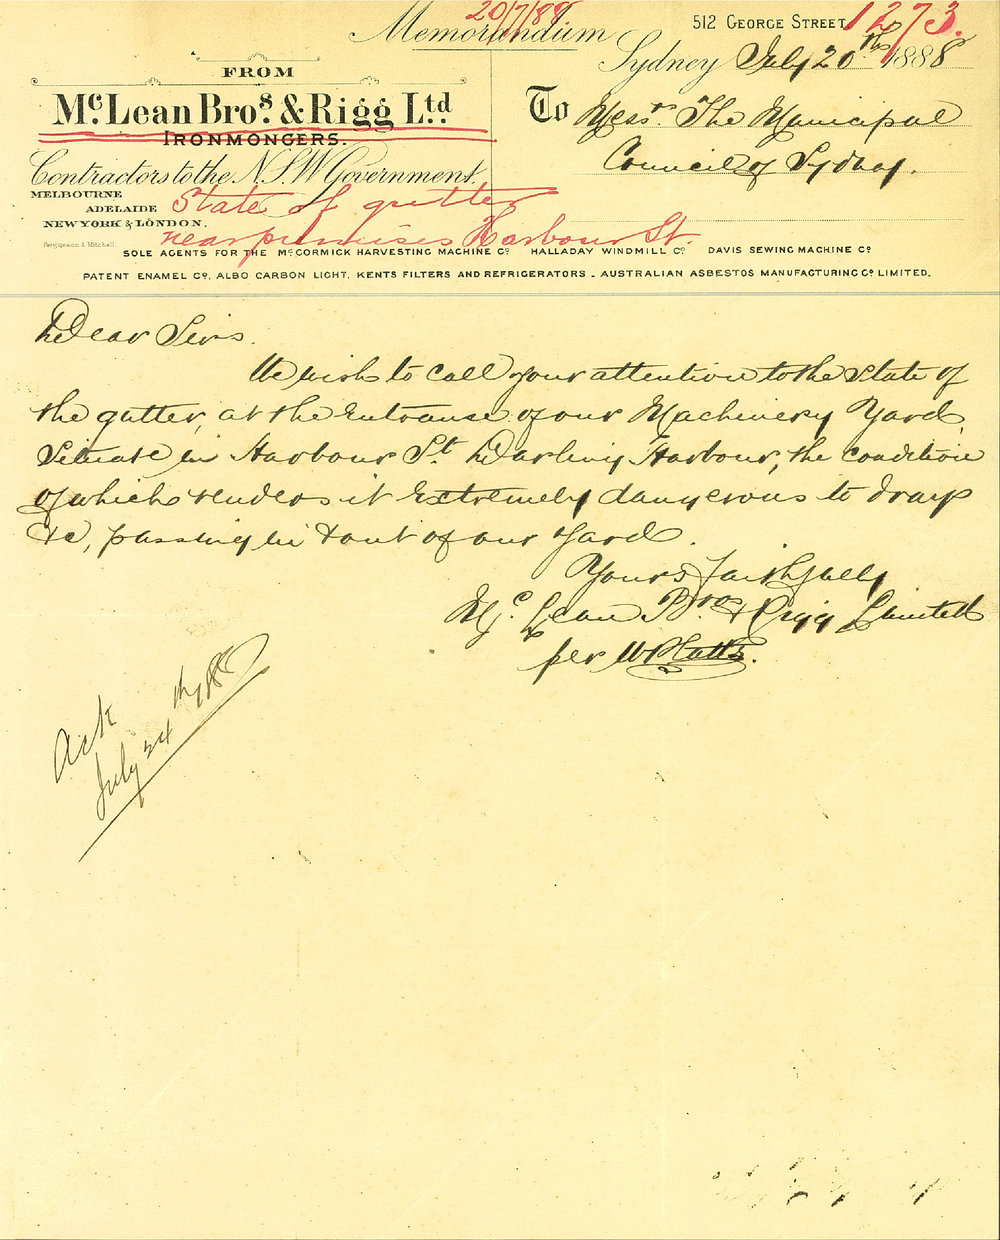 20/7/88
Memorandum
512 George Street 1273.
Sydney July 20th 1888
FROM
McLean Bros. & Rigg Ltd.
IRONMONGERS.
Contractors to the N.S.W Government.
MELBOURNE
ADELAIDE
NEW YORK & LONDON.
Ferguson & Mitchell
To Messrs. The Municipal
Council of Sydney.
State of gutter
near premises Harbour St.
SOLE AGENTS FOR THE McCORMICK HARVESTING MACHINE Co HALLADAY WINDMILL Co DAVIS SEWING MACHINE Co
PATENT ENAMEL Co. ALBO CARBON LIGHT. KENTS FILTERS AND REFRIGERATORS. AUSTRALIAN ASBESTOS MANUFACTURING Co LIMITED.
Dear Sirs.
We wish to call your attention to the state of
the gutter, at the Entrance of our Machinery Yard,
Situate in Harbour St. Darling Harbour, the condition
of which renders it Extremely dangerous to drays
&c, passing in front of our Yard.
Yours Faithfully
McLean Bros. & Rigg Limited
per
Ack
July 24th/88